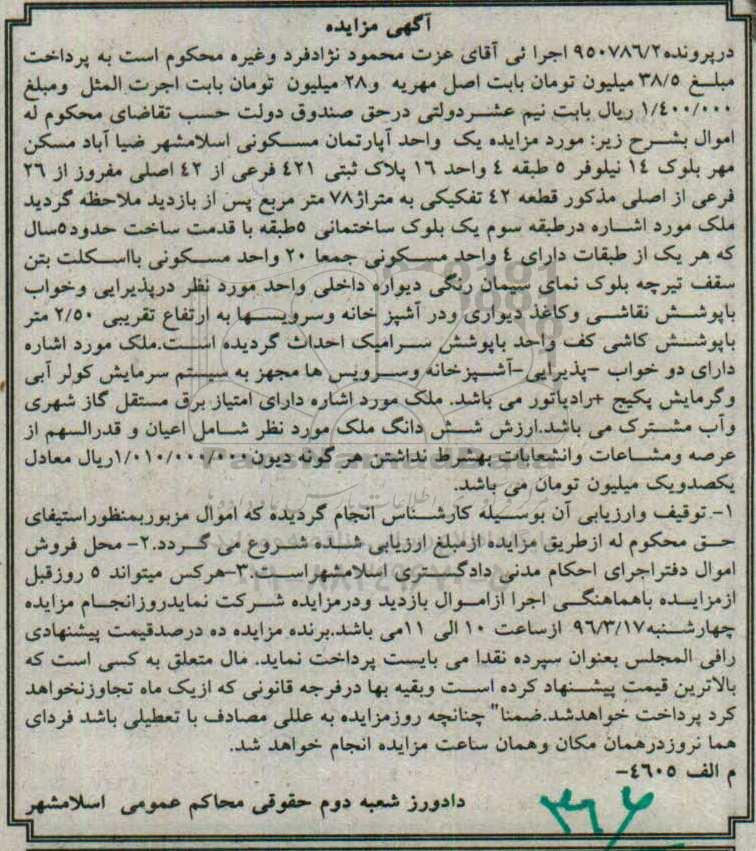 آگهی مزایده
درپرونده۹۵۰۷۸۶/۲ اجرا ئی آقای عزت محمود نژادفرد وغیره محکوم است به پرداخت
مبلغ ۳۸/۵ میلیون تومان بابت اصل مهریه و۲۸ میلیون تومان بابت اجرت المثل ومبلغ
۱/٤۰۰/۰۰۰ ریال بابت نیم عشردولتی درحق صندوق دولت حسب تقاضای محکوم له
اموال بشرح زیر: مورد مزایده یک واحد آپارتمان مسکونی اسلامشهر ضیا آباد مسکن
مهر بلوک ۱٤ نیلوفر ۵ طبقه ٤ واحد ۱۶ پلاک ثبتی ٤۲۱ فرعی از ٤۲ اصلی مفروز از ۲۶
فرعی از اصلی مذکور قطعه ٤۲ تفکیکی به متراژ۷۸ متر مربع پس از بازدید ملاحظه گردید
ملک مورد اشاره درطبقه سوم یک بلوک ساختمانی ۵طبقه با قدمت ساخت حدود۵سال
که هر یک از طبقات دارای ٤ واحد مسکونی جمعا ۲۰ واحد مسکونی بااسکلت بتن
سقف تیرچه بلوک نمای سیمان رنگی دیواره داخلی واحد مورد نظر درپذیرایی وخواب
باپوشش نقاشی وکاغذ دیواری ودر آشپز خانه وسرویسها به ارتفاع تقریبی ۲/۵۰ متر
باپوشش کاشی کف واحد باپوشش سرامیک احداث گردیده است.ملک مورد اشاره
دارای دو خواب –پذیرایی–آشپزخانه وسرویس ها مجهز به سیستم سرمایش کولر آبی
وگرمایش پکیج +رادیاتور می باشد. ملک مورد اشاره دارای امتیاز برق مستقل گاز شهری
وآب مشترک می باشد.ارزش شش دانگ ملک مورد نظر شامل اعیان و قدرالسهم از
عرصه ومشاعات وانشعابات بهشرط نداشتن هر گونه دیون۱/۰۱۰/۰۰۰/۰۰۰ریال معادل
یکصدویک میلیون تومان می باشد.
۱- توقیف وارزیابی آن بوسیله کارشناس انجام گردیده که اموال مزبوربمنظوراستیفای
حق محکوم له ازطریق مزایده ازمبلغ ارزیابی شده شروع می گردد.۲- محل فروش
اموال دفتراجرای احکام مدنی دادگستری اسلامشهراست.۳-هرکس میتواند ۵ روزقبل
ازمزایده باهماهنگی اجرا ازاموال بازدید ودرمزایده شرکت نمایدروزانجام مزایده
چهارشنبه۹۶/۳/۱۷ ازساعت ۱۰ الی ۱۱می باشد.برنده مزایده ده درصدقیمت پیشنهادی
رافی المجلس بعنوان سپرده نقدا می بایست پرداخت نماید. مال متعلق به کسی است که
بالاترین قیمت پیشنهاد کرده است وبقیه بها درفرجه قانونی که ازیک ماه تجاوزنخواهد
کرد پرداخت خواهدشد.ضمنا" چنانچه روزمزایده به عللی مصادف با تعطیلی باشد فردای
هما نروزدرهمان مکان وهمان ساعت مزایده انجام خواهد شد.
م الف ٤۶۰۵–
دادورز شعبه دوم حقوقی محاکم عمومی اسلامشهر